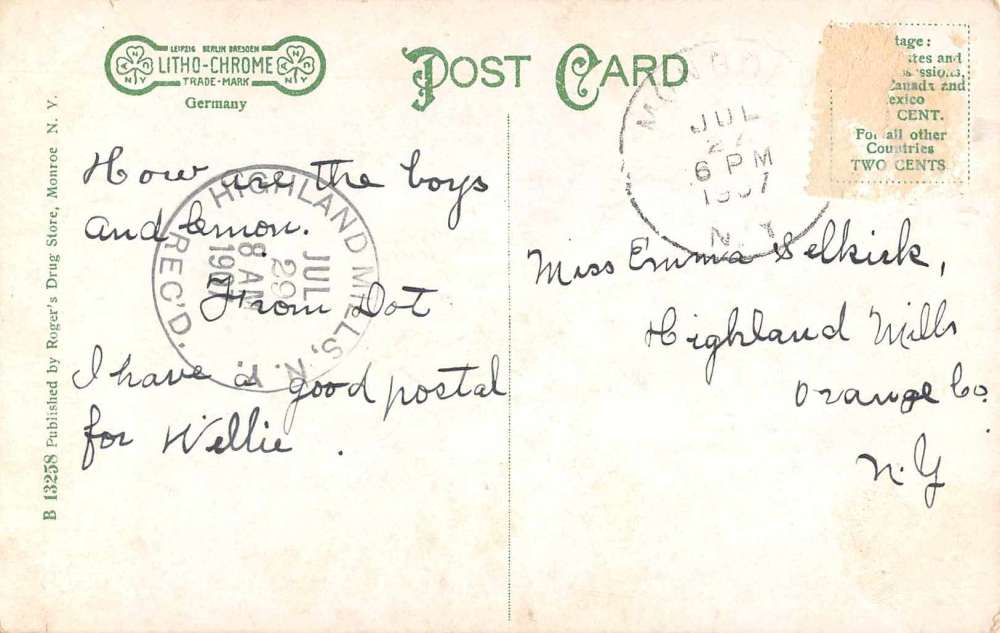 LEIPZIG BERLIN DRESDEN
LITHO-CHROME
TRADE-MARK
Germany
POST CARD
JUL
6 PM
1907
N.Y.
tage:
tes and
ssions,
Canada and
exico
CENT.
For all other
Countries
TWO CENTS
B 13258 Published by Roger's Drug Store, Monroe N. Y.
How are the boys
and lemon.
From Dot
I have a good postal
for Wellie.
HIGHLAND MILLS, N.Y.
JUL
29
8 AM
1907
REC'D.
Miss Emma Selkirk,
Highland Mills
Orange Co.
N.Y